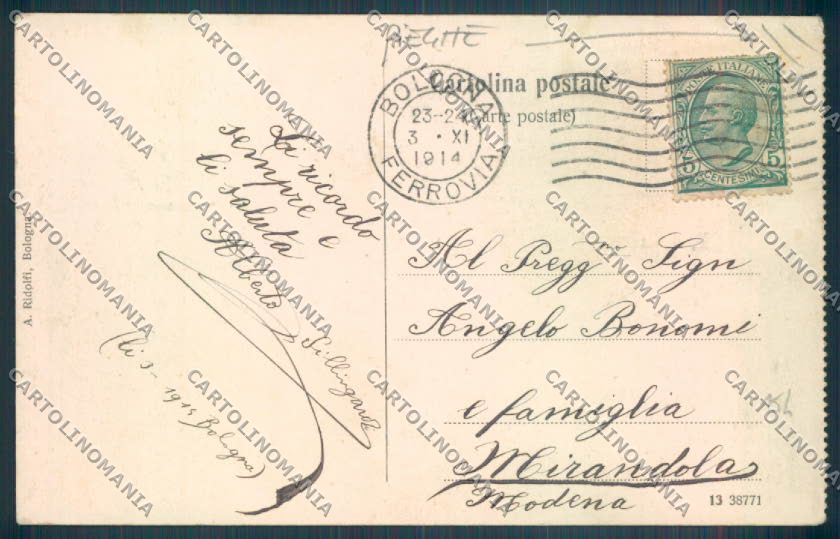 Cartolina postale
(Carte postale)
BOLOGNA
23-24
3 · XI
1914
FERROVIA
POSTE ITALIANE
5 5
CENTESIMI
Vi ricordo
sempre e
vi saluta
Alberto
Sillingardi
(li 3 - 1914 Bologna)
Al Pregg Sign
Angelo Bonomi
e famiglia
Mirandola
Modena
A. Ridolfi, Bologna
13 38771
CARTOLINOMANIA